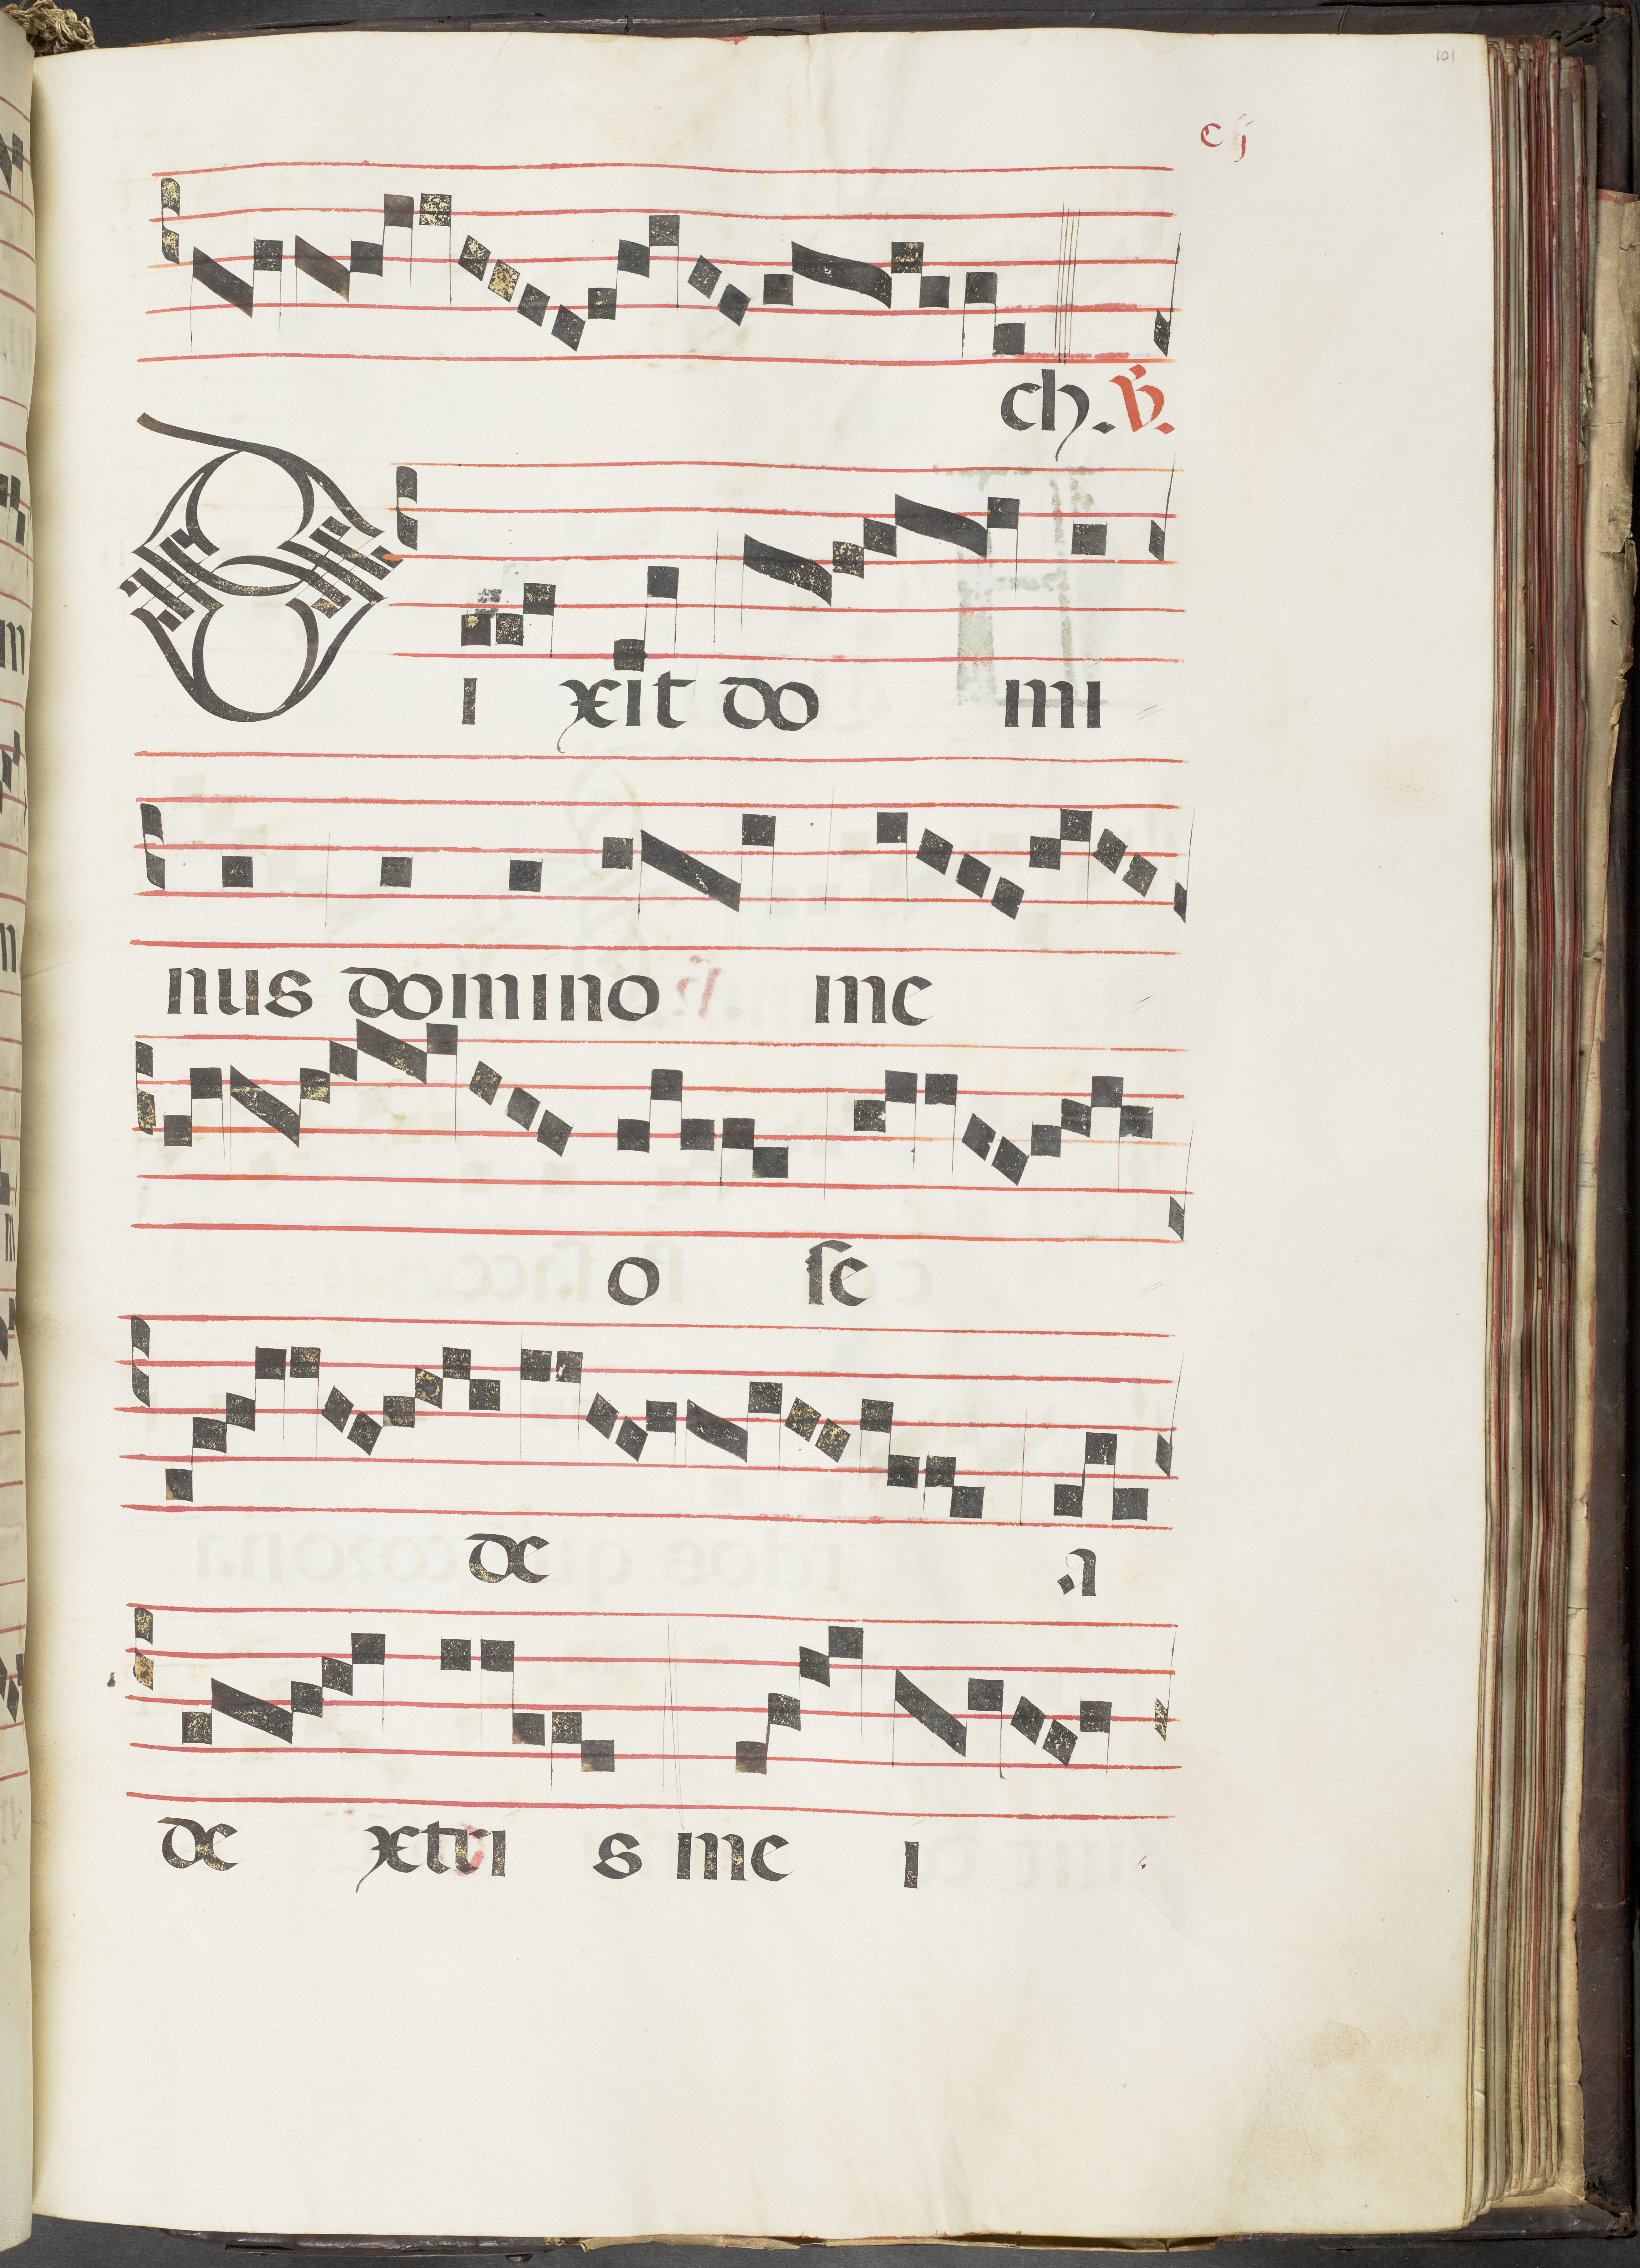 101
cj
ch. ℣.
Di xit do mi
nus domino me
o se
de a
de xtri s me i